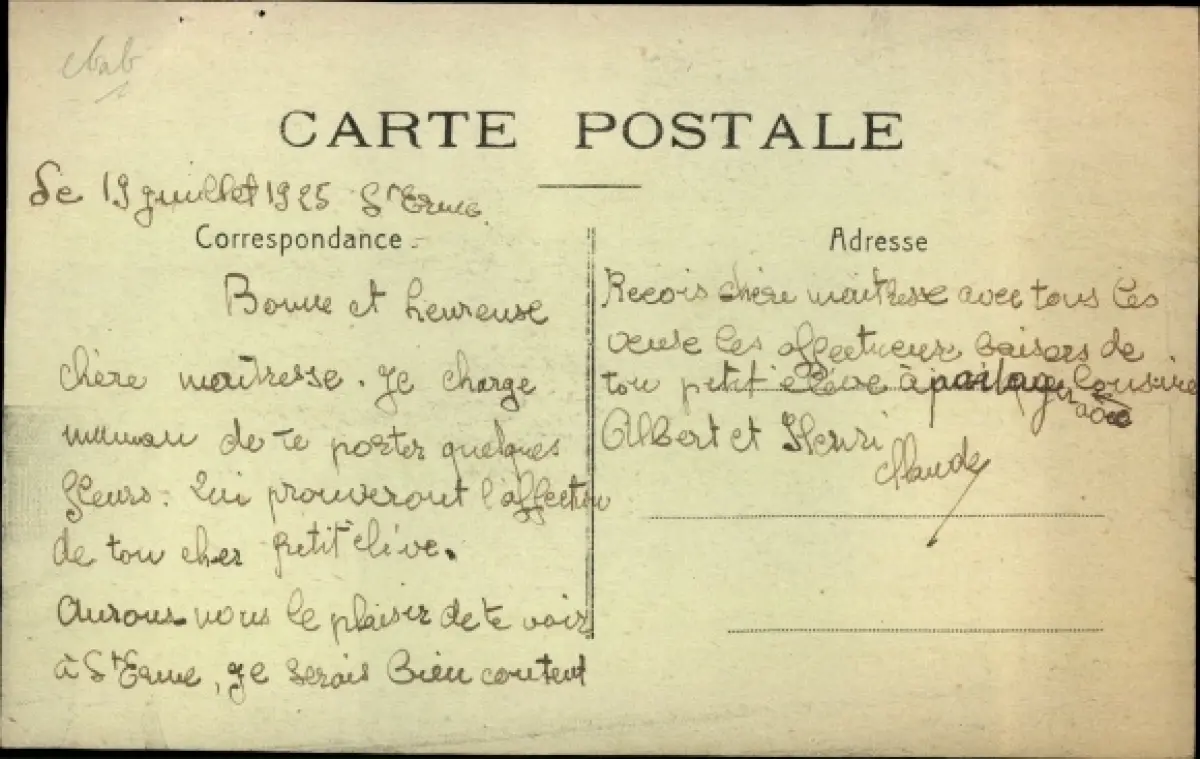 CARTE POSTALE
Le 19 juillet 1925 St Erme
Correspondance
Bonne et heureuse
chère maitresse. Je charge
maman de te porter quelques
fleurs. Qui prouveront l'affection
de ton cher petit élève.
Aurons nous le plaisir de te voir
à St Erme, Je serais bien content
Adresse
Recois chère maitresse avec tous les
veuse les affectueux baisers de
ton petit élève à partager avec
Albert et Henri
Claude